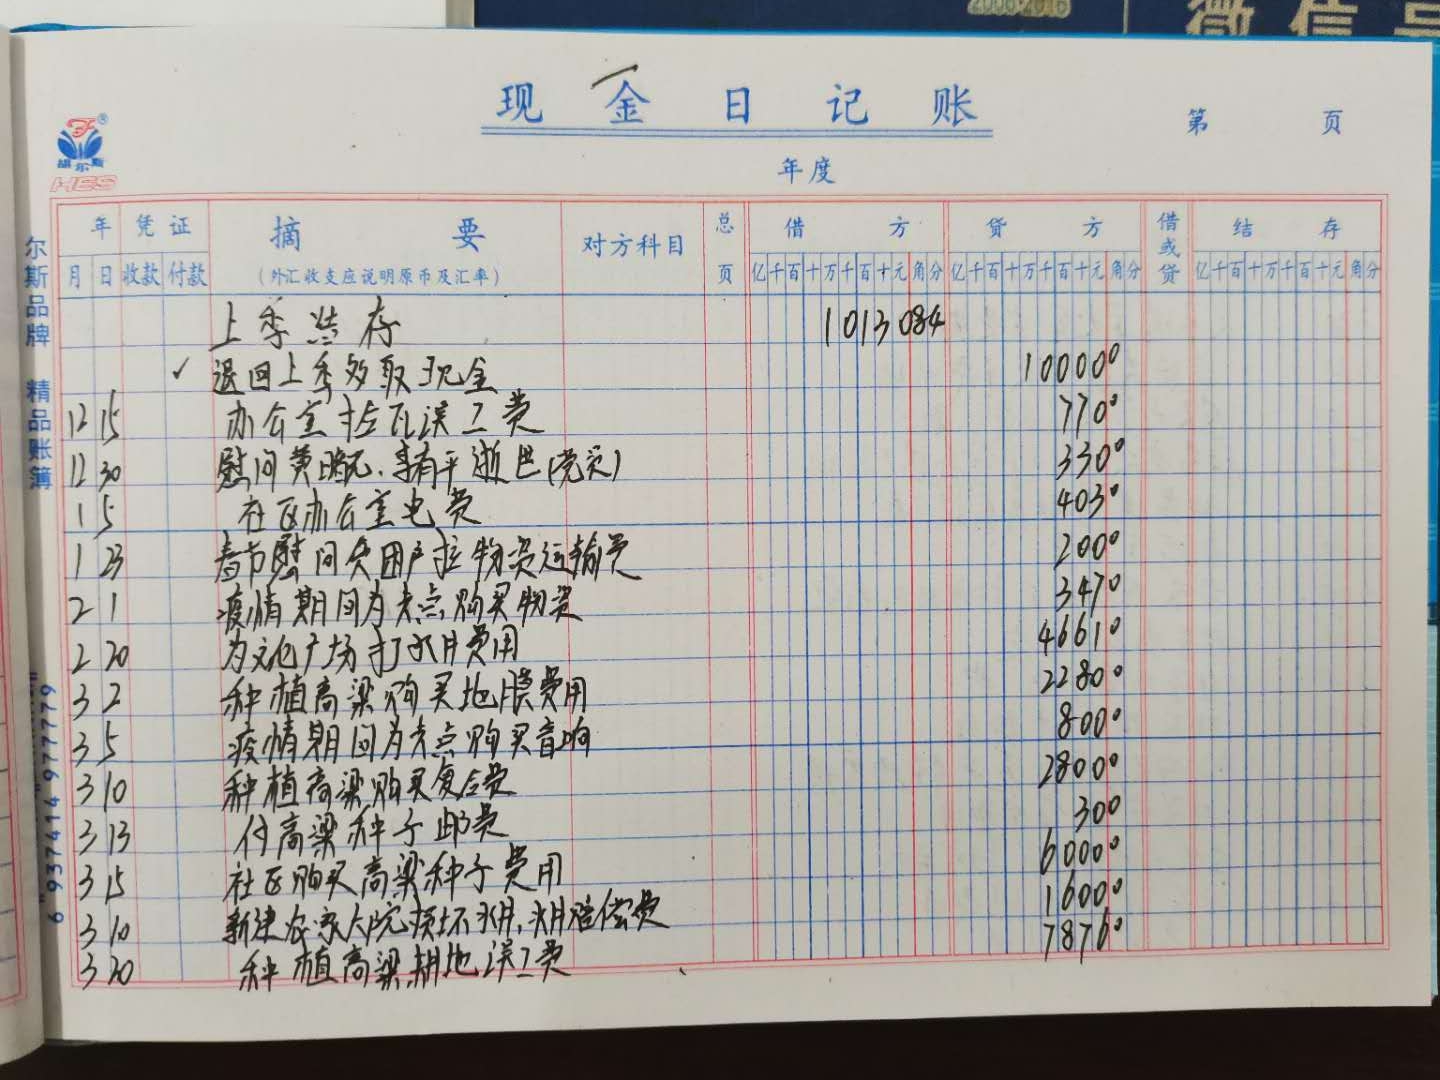 2006-2016
微信号
现金日记账
第 页
年度
胡尔斯
HES
尔斯品牌 精品账簿
6 "937414"977779"
年 凭证 摘要 对方科目 总页 借方 贷方 借或贷 结存
月 日 收款 付款 (外汇收支应说明原币及汇率) 亿千百十万千百十元角分 亿千百十万千百十元角分 亿千百十万千百十元角分
上季结存 1013084
✓ 退回上季多取现金 100000
12 15 办公室捡瓦误工费 7700
12 30 慰问黄晓元、李有平逝世(党员) 3300
1 5 社区办公室电费 4030
1 23 春节慰问贫困户拉物资运输费 2000
2 1 疫情期间为卡点购买物资 3470
2 20 为文化广场打水井费用 46610
3 2 种植高粱购买地膜费用 22800
3 5 疫情期间为卡点购买音响 8000
3 10 种植高粱购买复合费 28000
3 13 付高粱种子邮费 300
3 15 社区购买高粱种子费用 60000
3 10 新建农家大院损坏水井,水井赔偿费 16000
3 20 种植高粱耕地误工费 78760